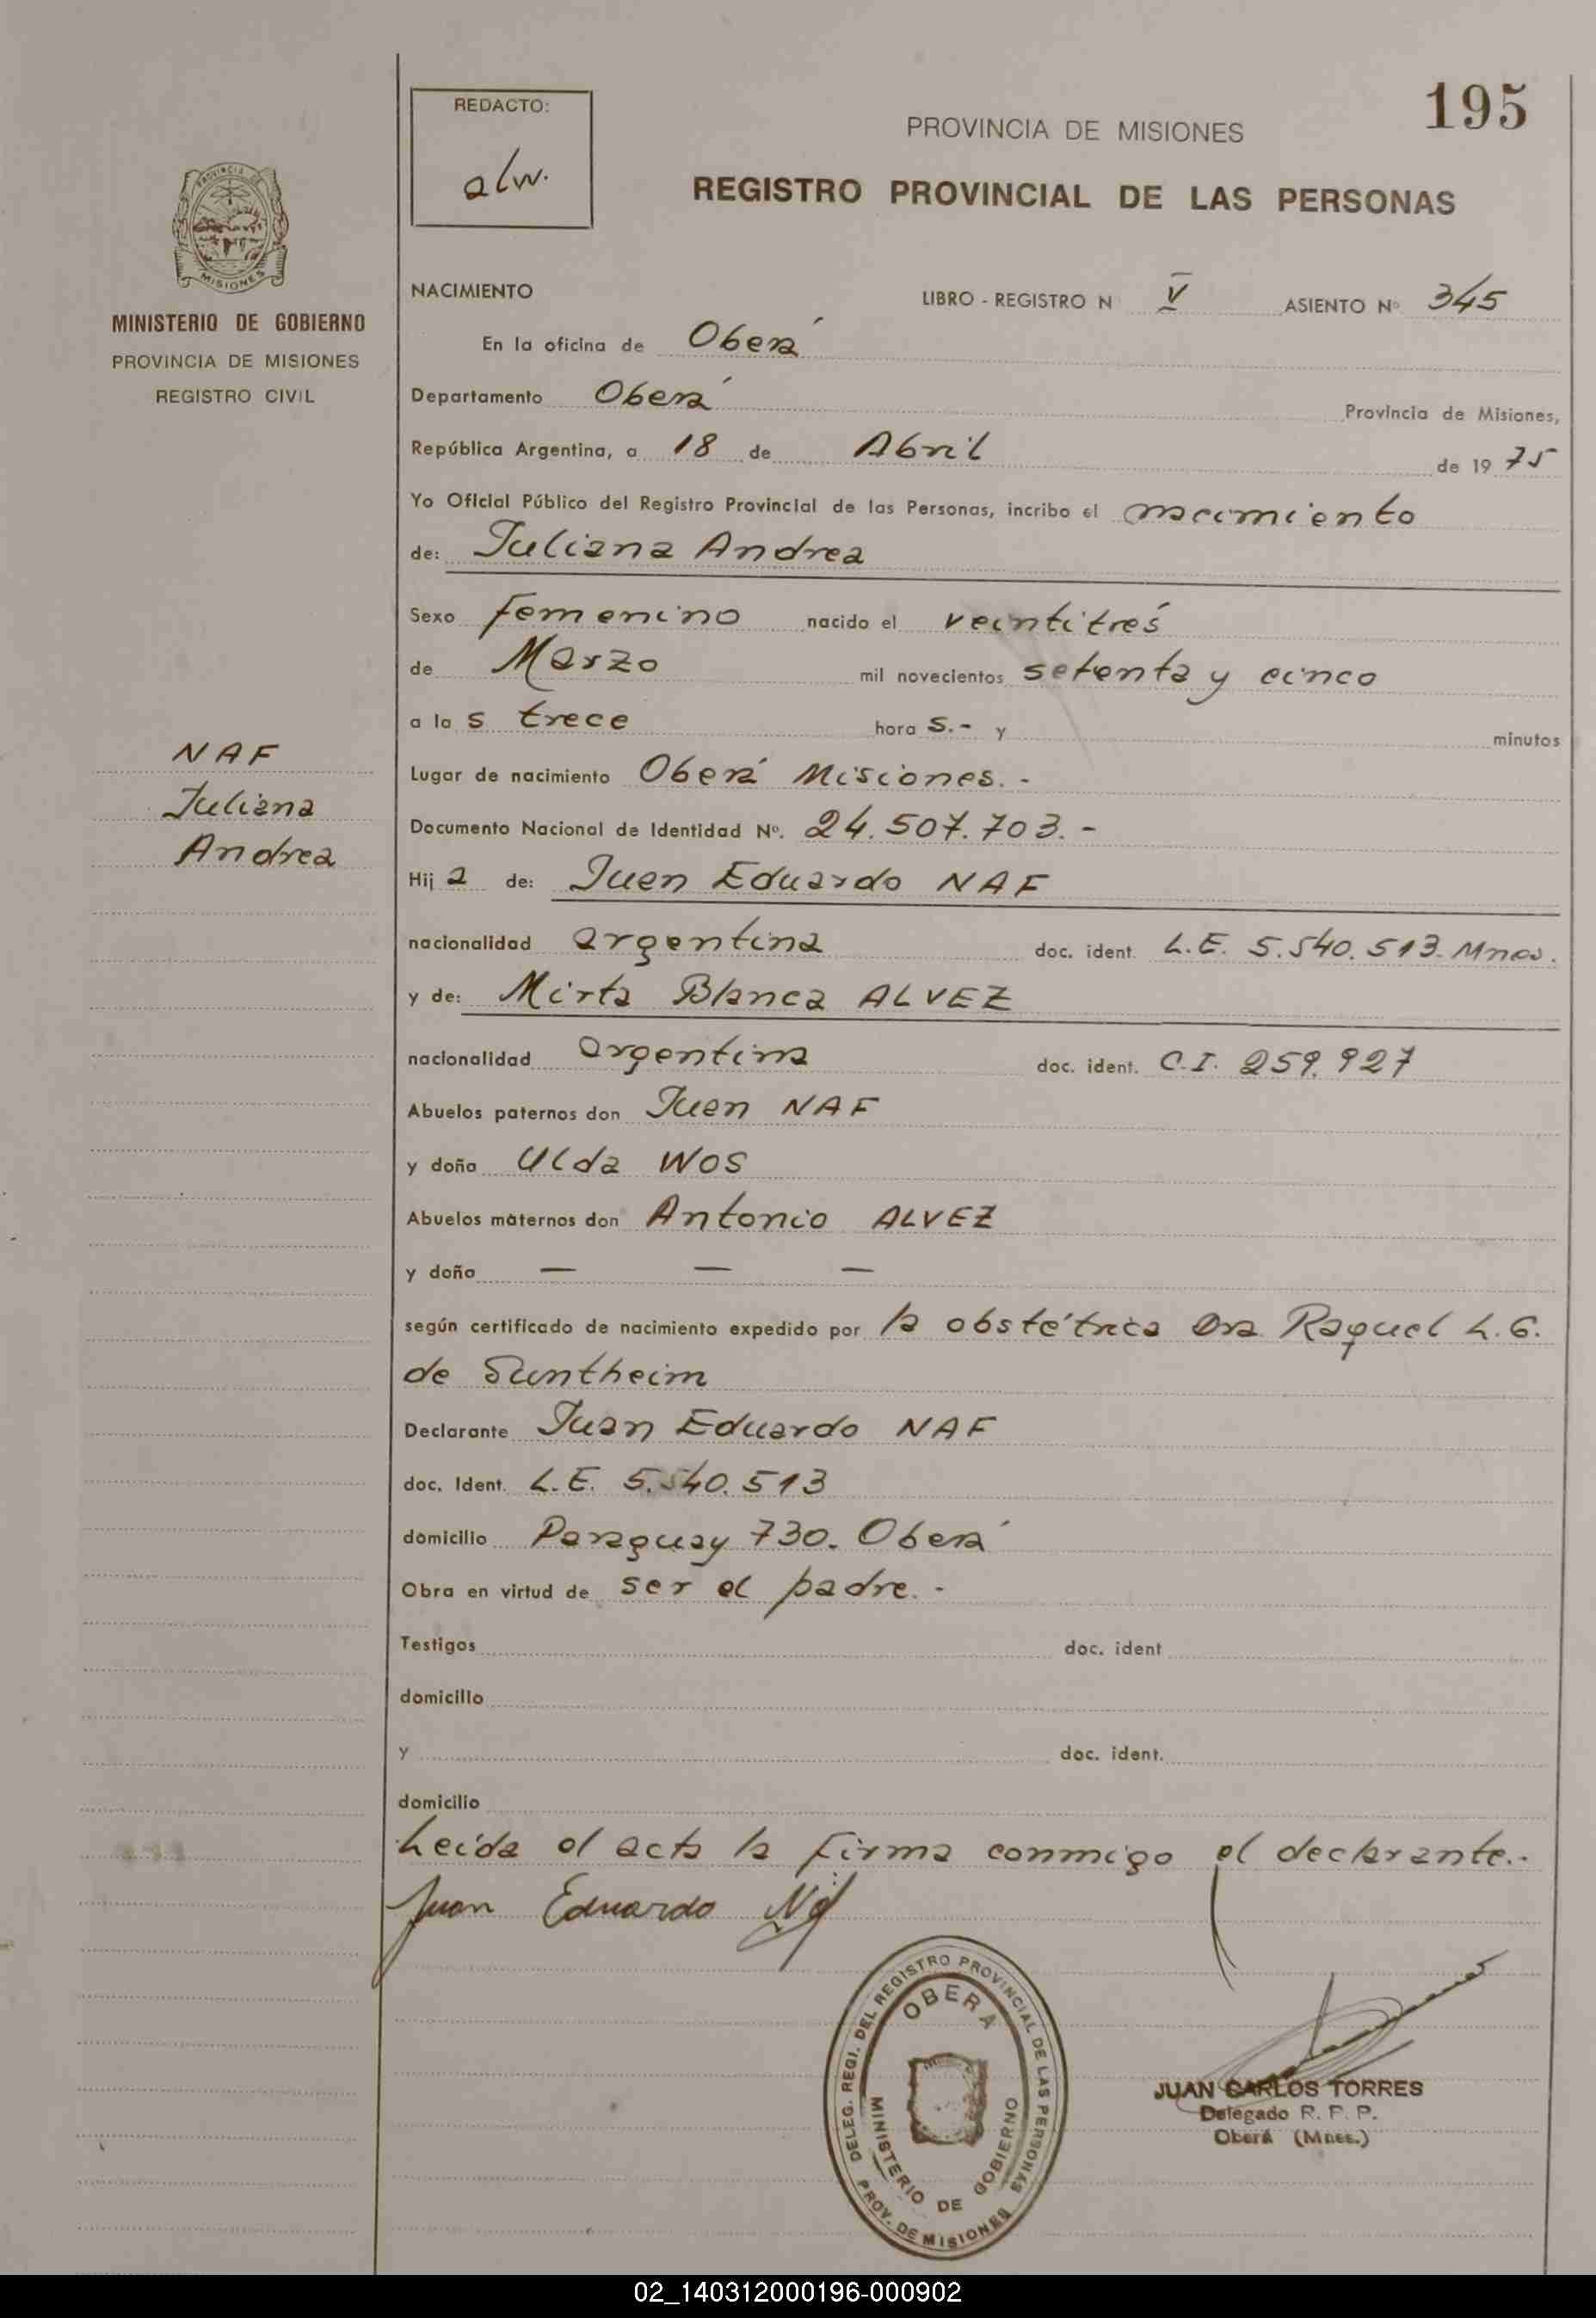 195
REDACTO:
alw.
PROVINCIA DE MISIONES
REGISTRO PROVINCIAL DE LAS PERSONAS
PROVINCIA DE
MISIONES
MINISTERIO DE GOBIERNO
PROVINCIA DE MISIONES
REGISTRO CIVIL
NACIMIENTO LIBRO - REGISTRO N V ASIENTO Nº 345
En la oficina de Oberá
Departamento Oberá Provincia de Misiones,
República Argentina, a 18 de Abril de 19 75
Yo Oficial Público del Registro Provincial de las Personas, incribo el nacimiento
de: Juliana Andrea
Sexo Femenino nacido el veintitrés
de Marzo mil novecientos setenta y cinco
a la s trece hora s.- y minutos
NAF
Juliana
Andrea
Lugar de nacimiento Oberá Misiones.-
Documento Nacional de Identidad Nº. 24.507.703.-
Hij a de: Juan Eduardo NAF
nacionalidad argentina doc. ident. L.E. 5.540.513 Mnes.
y de: Mirta Blanca ALVEZ
nacionalidad argentina doc. ident. C.I. 259.927
Abuelos paternos don Juan NAF
y doña Ulda WOS
Abuelos maternos don Antonio ALVEZ
y doña — — —
según certificado de nacimiento expedido por la obstétrica Dra Raquel L. G.
de Suntheim
Declarante Juan Eduardo NAF
doc. Ident. L.E. 5.540.513
domicilio Paraguay 730. Oberá
Obra en virtud de ser el padre.-
Testigos doc. ident
domicilio
y doc. ident.
domicilio
Leída el acta la firma conmigo el declarante.-
Juan Eduardo Naf
DELEG. REGI. DEL REGISTRO PROVINCIAL DE LAS PERSONAS
OBERA
MINISTERIO DE GOBIERNO
PROV. DE MISIONES
JUAN CARLOS TORRES
Delegado R. P. P.
Oberá (Mnes.)
02_140312000196-000902